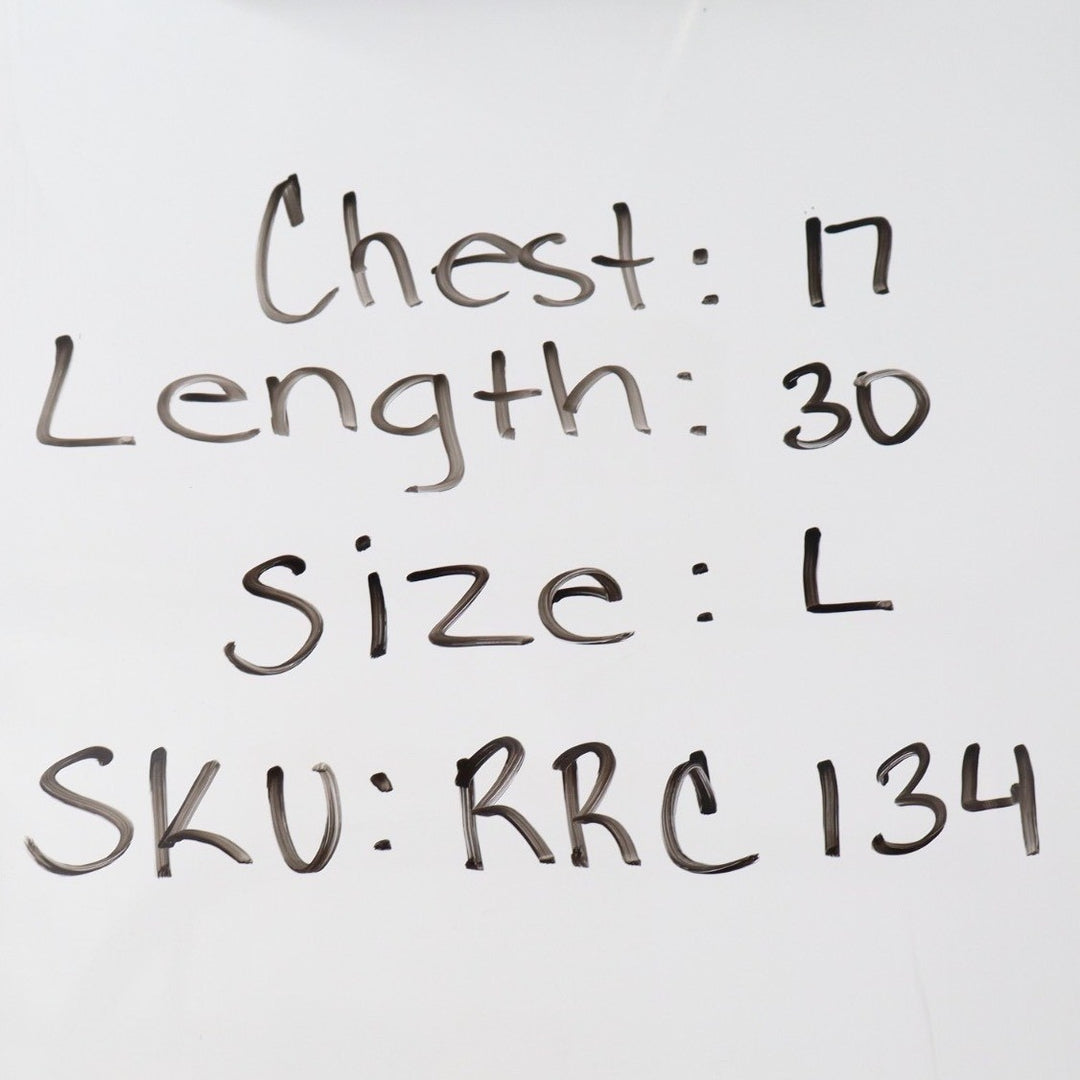 Chest: 17
Length: 30
Size: L
SKU: RRC 134